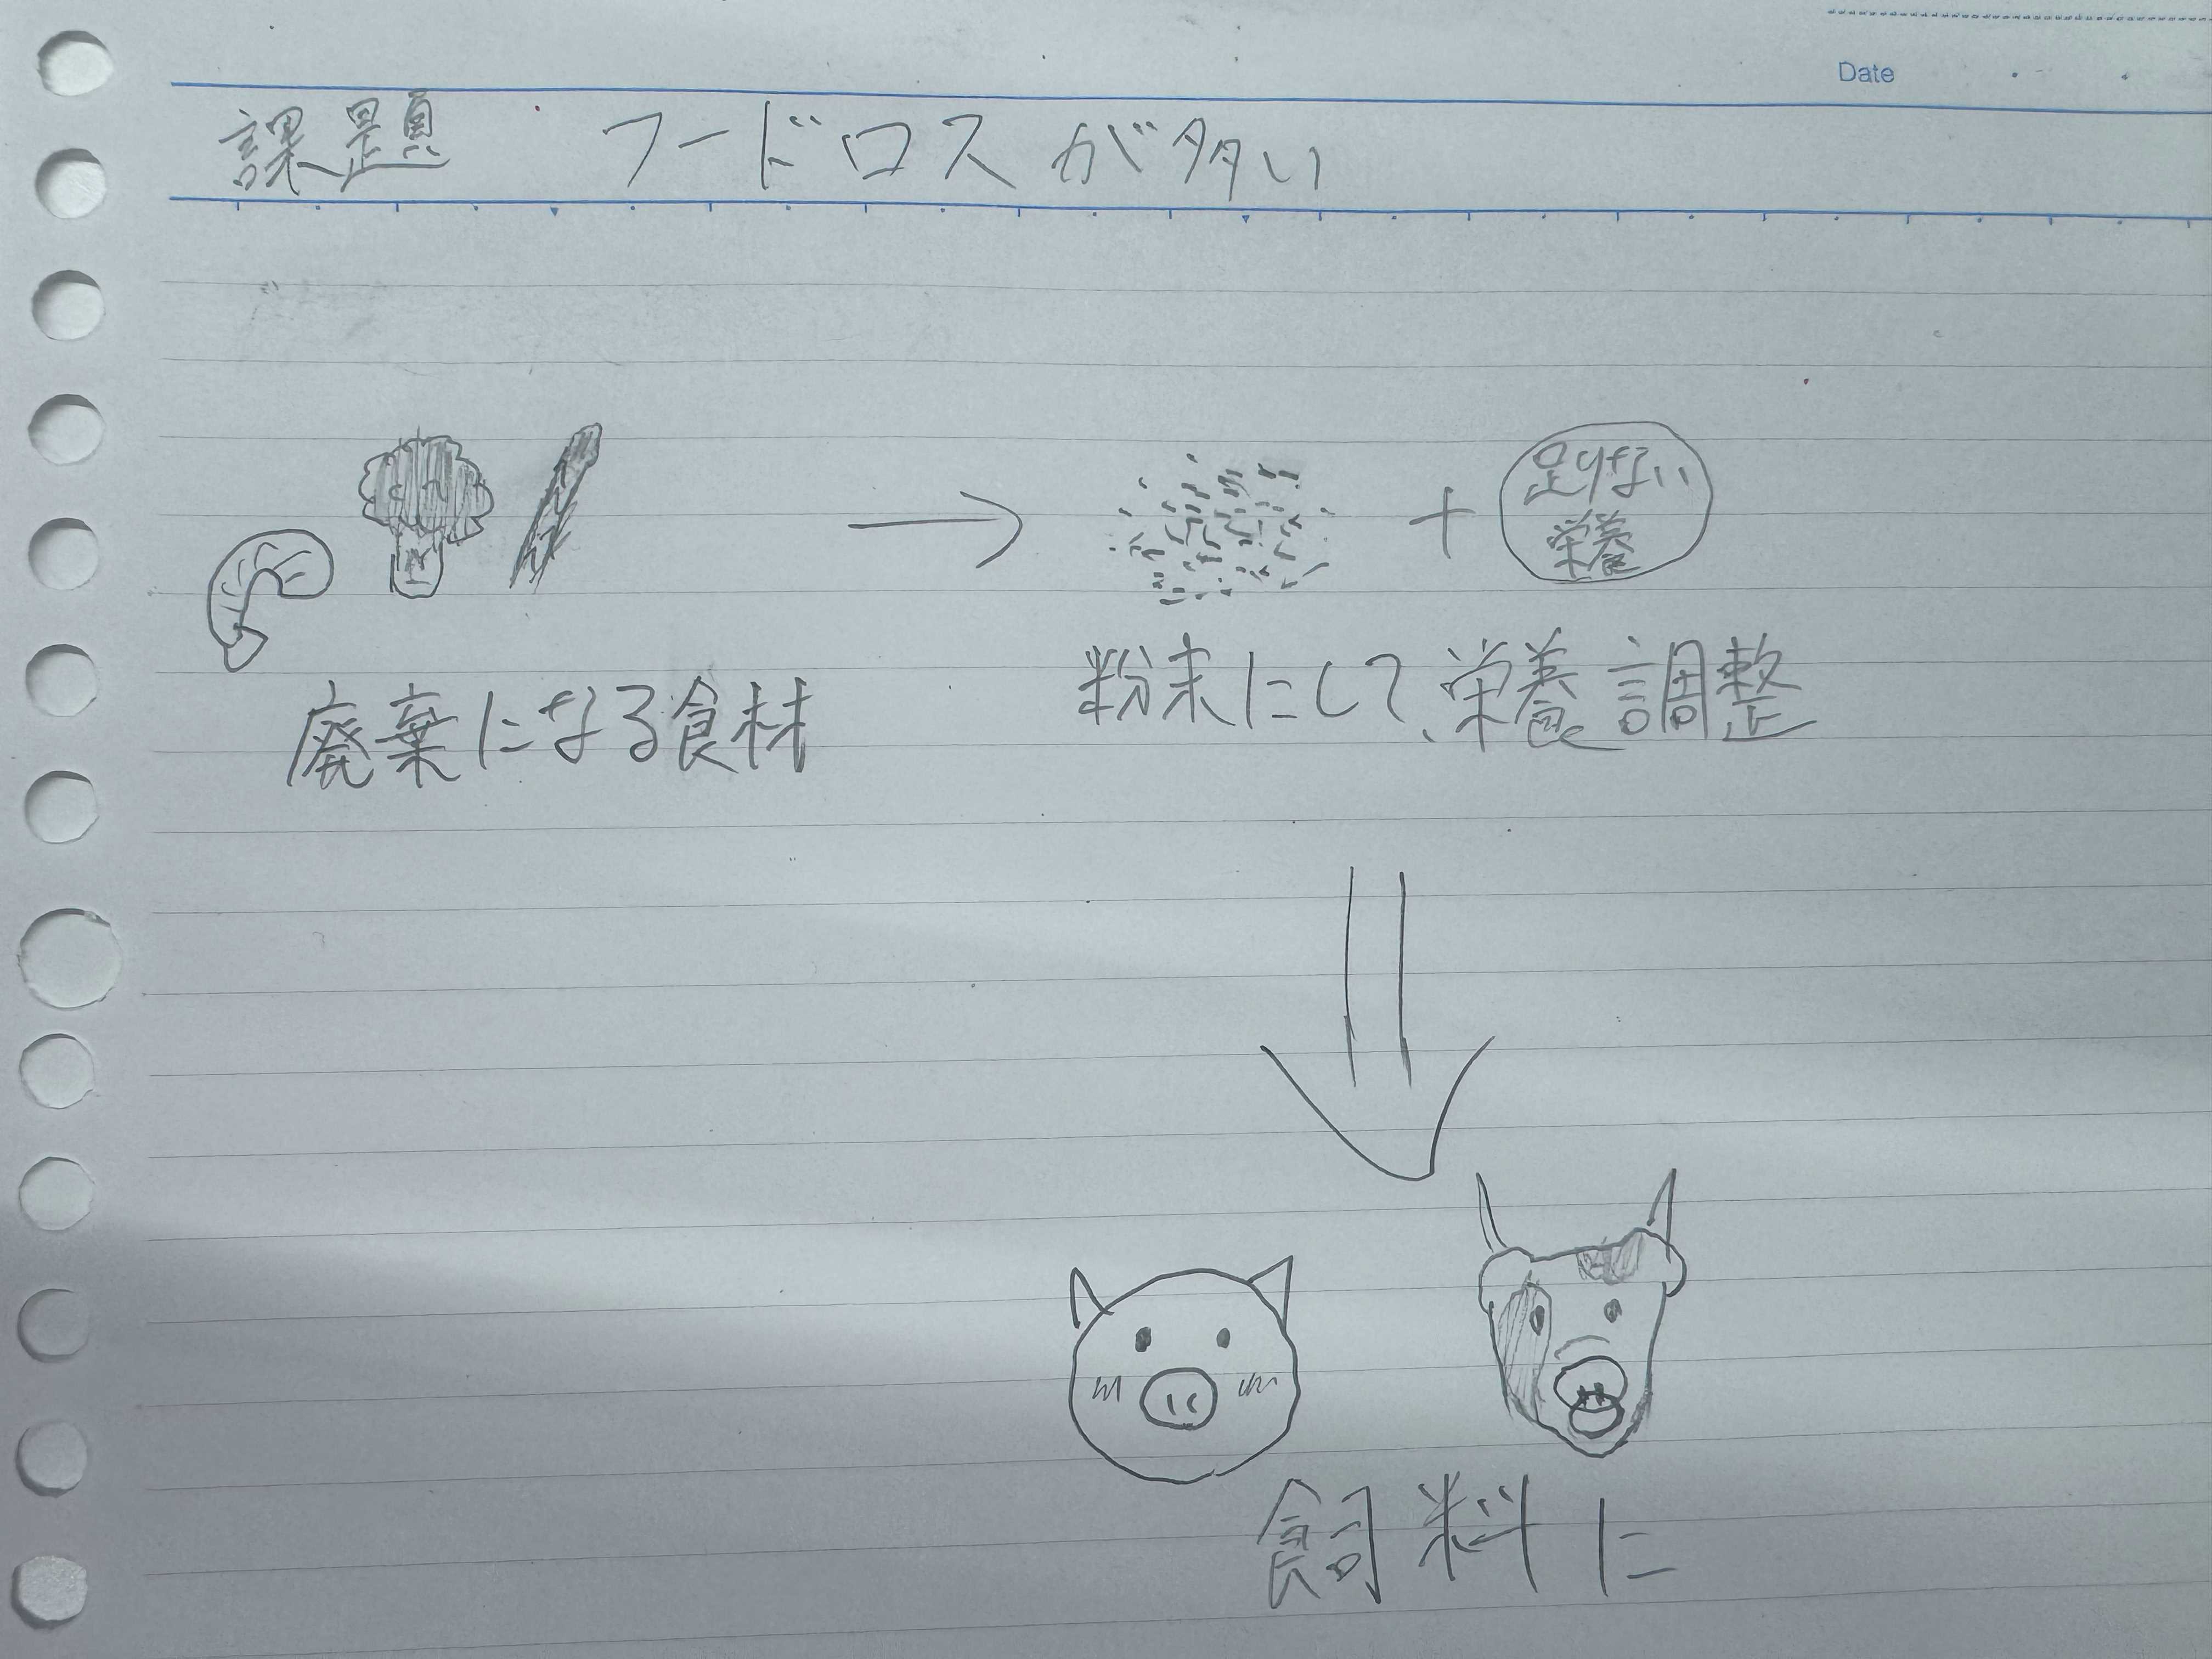 Date
課題 フードロスが多い
足りない
栄養
廃棄になる食材
粉末にして、栄養調整
飼料に